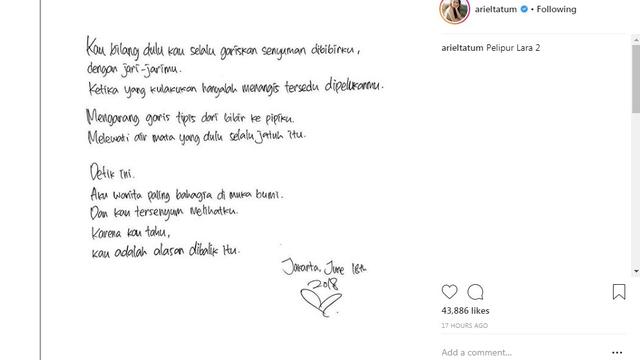 arieltatum • Following
Kau bilang dulu kau selalu gariskan senyuman dibibirku,
dengan jari-jarimu.
Ketika yang kulakukan hanyalah menangis tersedu dipelukanmu.
Mengarang garis tipis dari bibir ke pipiku.
Melewati air mata yang dulu selalu jatuh itu.
Detik ini.
Aku wanita paling bahagia di muka bumi.
Dan kau tersenyum melihatku.
Karena kau tahu,
kau adalah alasan dibalik itu.
Jakarta, June 18th
2018
arieltatum Pelipur Lara 2
43,886 likes
17 HOURS AGO
Add a comment...